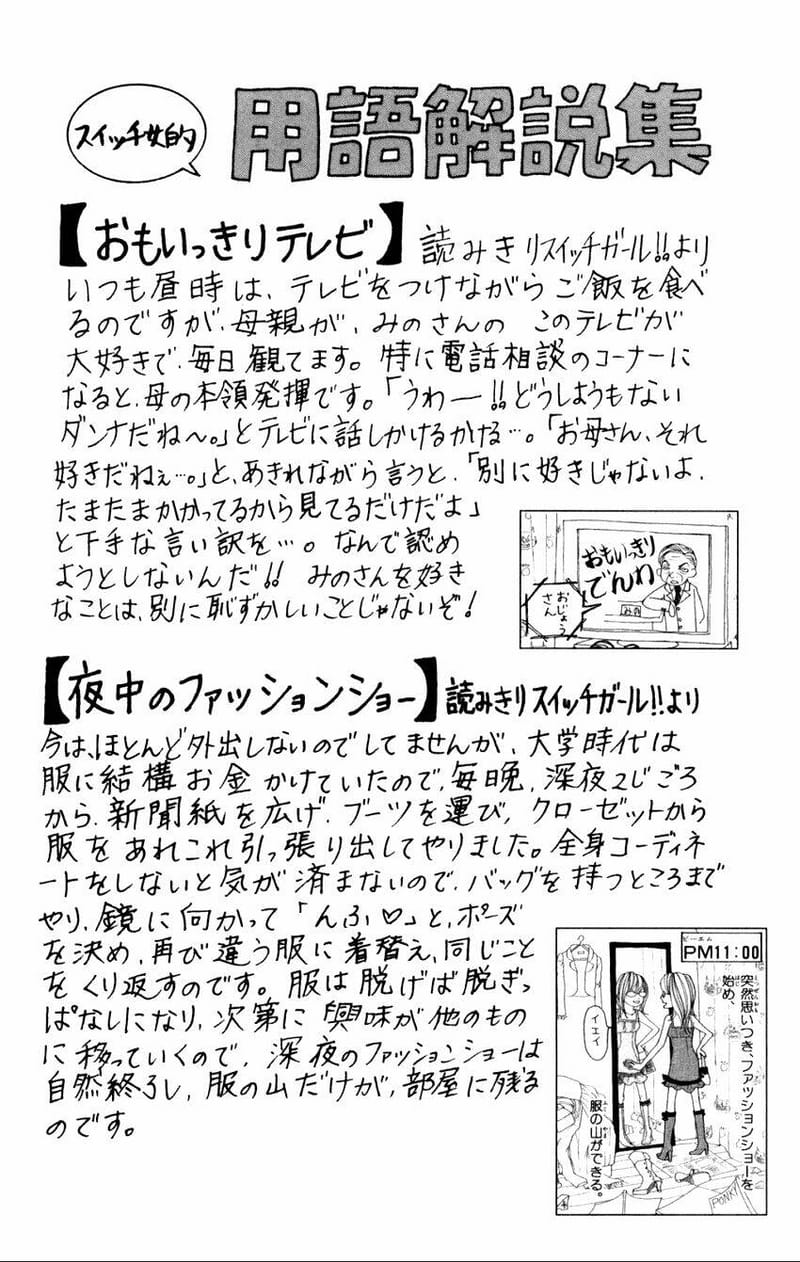 スイッチ女的
用語解説集
【おもいっきりテレビ】読みきりスイッチガール!!より
いつも昼時は、テレビをつけながらご飯を食べ
るのですが、母親が、みのさんの このテレビが
大好きで、毎日観てます。特に電話相談のコーナーに
なると、母の本領発揮です。「うわー!!どうしようもない
ダンナだね〜。」とテレビに話しかけるかける…。「お母さん、それ
好きだねぇ…。」と、あきれながら言うと、「別に好きじゃないよ、
たまたまかかってるから見てるだけだよ」
と下手な言い訳を…。なんで認め
ようとしないんだ!! みのさんを好き
なことは、別に恥ずかしいことじゃないぞ!
おもいっきり
でんわ
おじょう
さん
みの
【夜中のファッションショー】読みきりスイッチガール!!より
今は、ほとんど外出しないのでしてませんが、大学時代は
服に結構お金かけていたので、毎日晩、深夜2じごろ
から、新聞紙を広げ、ブーツを運び、クローゼットから
服をあれこれ引っ張り出してやりました。全身コーディネ
ートをしないと気が済まないので、バッグを持つところまで
やり、鏡に向かって「んふ♡」と、ポーズ
を決め、再び違う服に着替え、同じこと
をくり返すのです。服は脱げば脱ぎっ
ぱなしになり、次第に興味が他のもの
に移っていくので、深夜のファッションショーは
自然終了し、服の山だけが、部屋に残る
のです。
ピーエム
PM11:00
突然思いつき、ファッションショーを
始め、
イエイ
服の山ができる。
PONKY